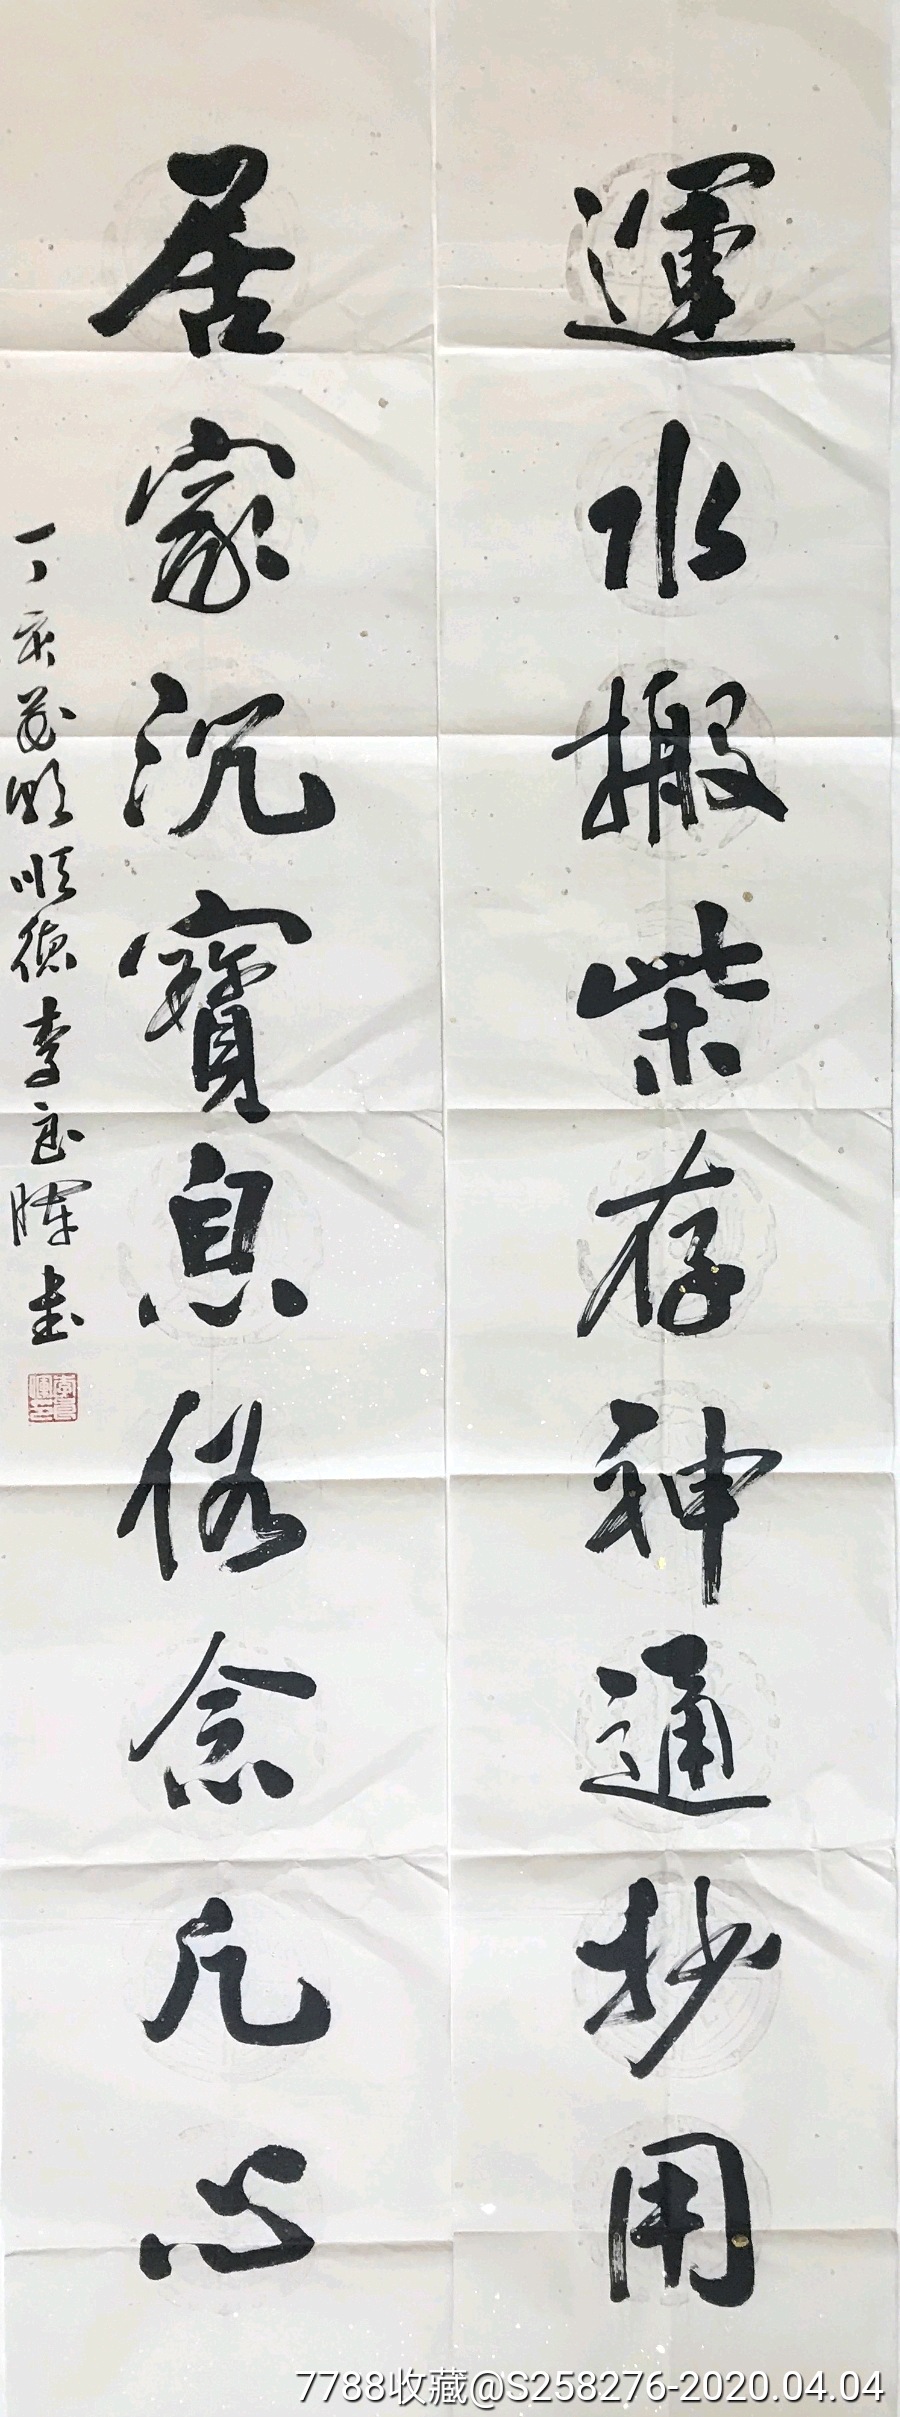 運水搬柴存神通抄用
居家沉寶息俗念凡心
丁亥 順德李良暉書
7788收藏@S258276-2020.04.04